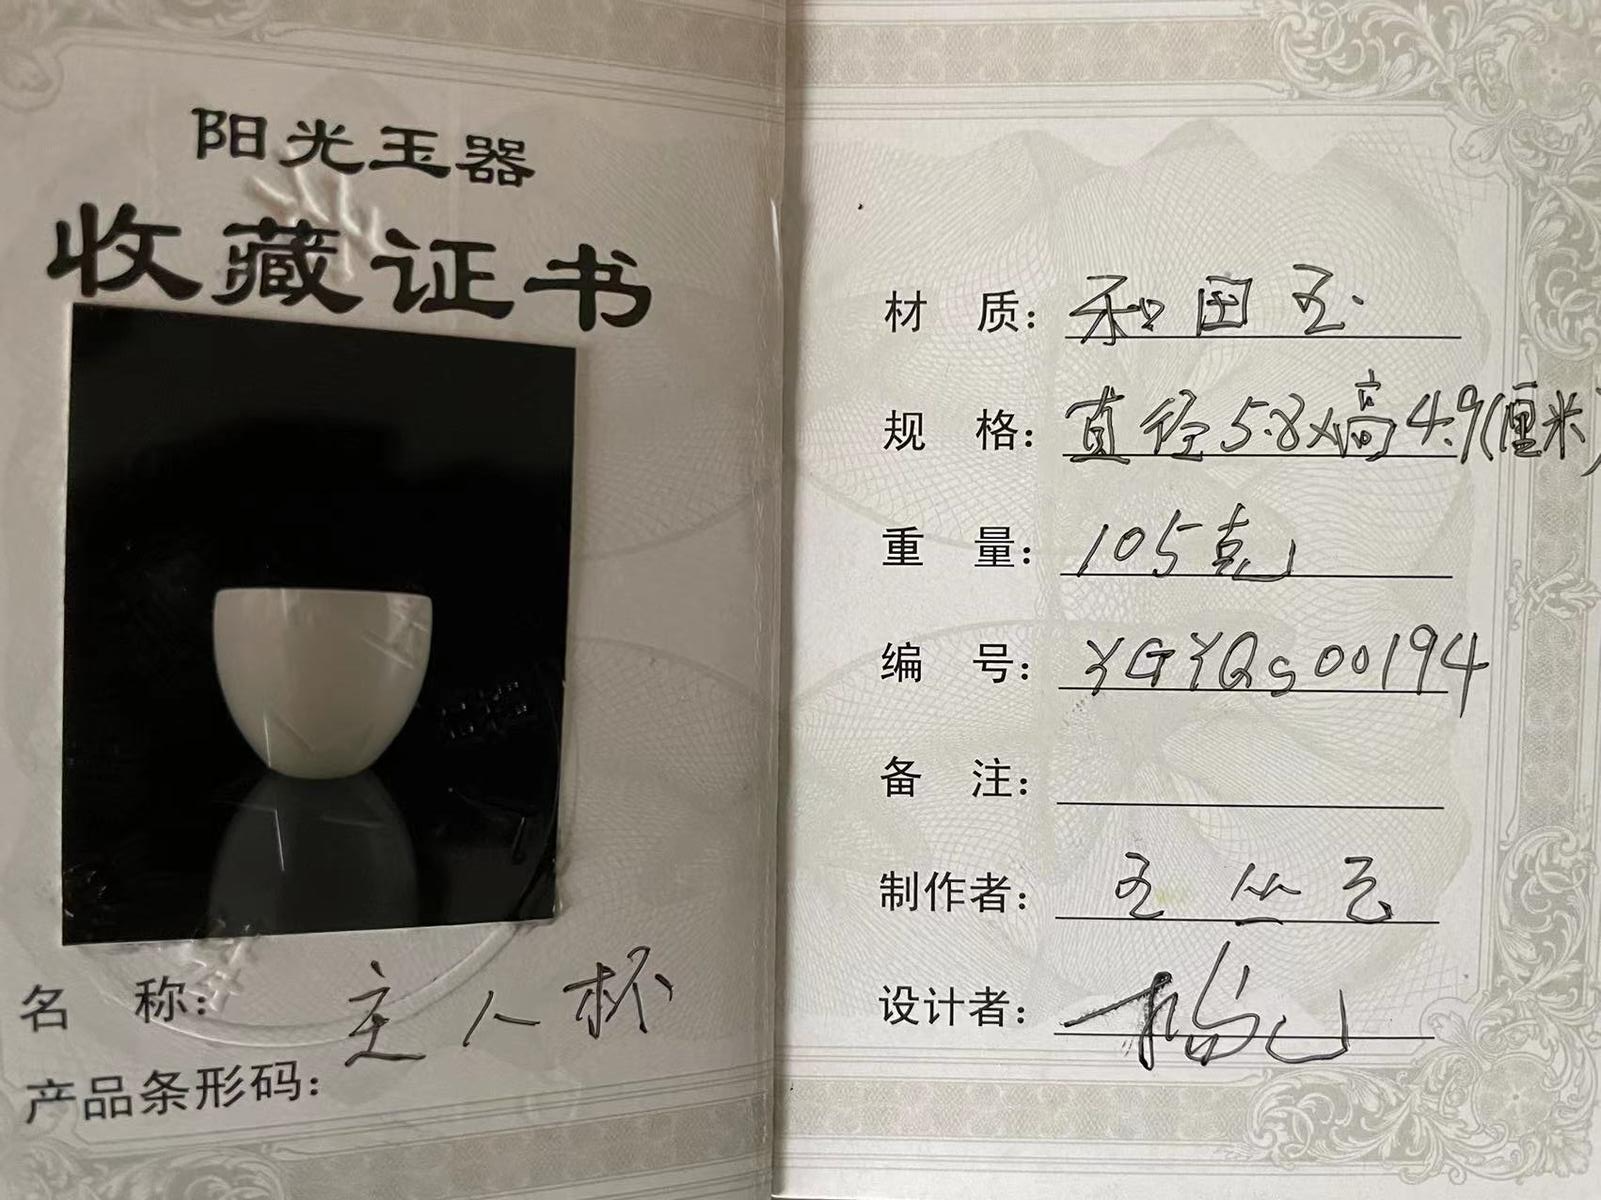 阳光玉器
收藏证书
名 称: 主人杯
产品条形码:
材 质: 和田玉
规 格: 直径5.8x高4.9(厘米)
重 量: 105克
编 号: YGYQS00194
备 注:
制作者: 王丛云
设计者: 杨